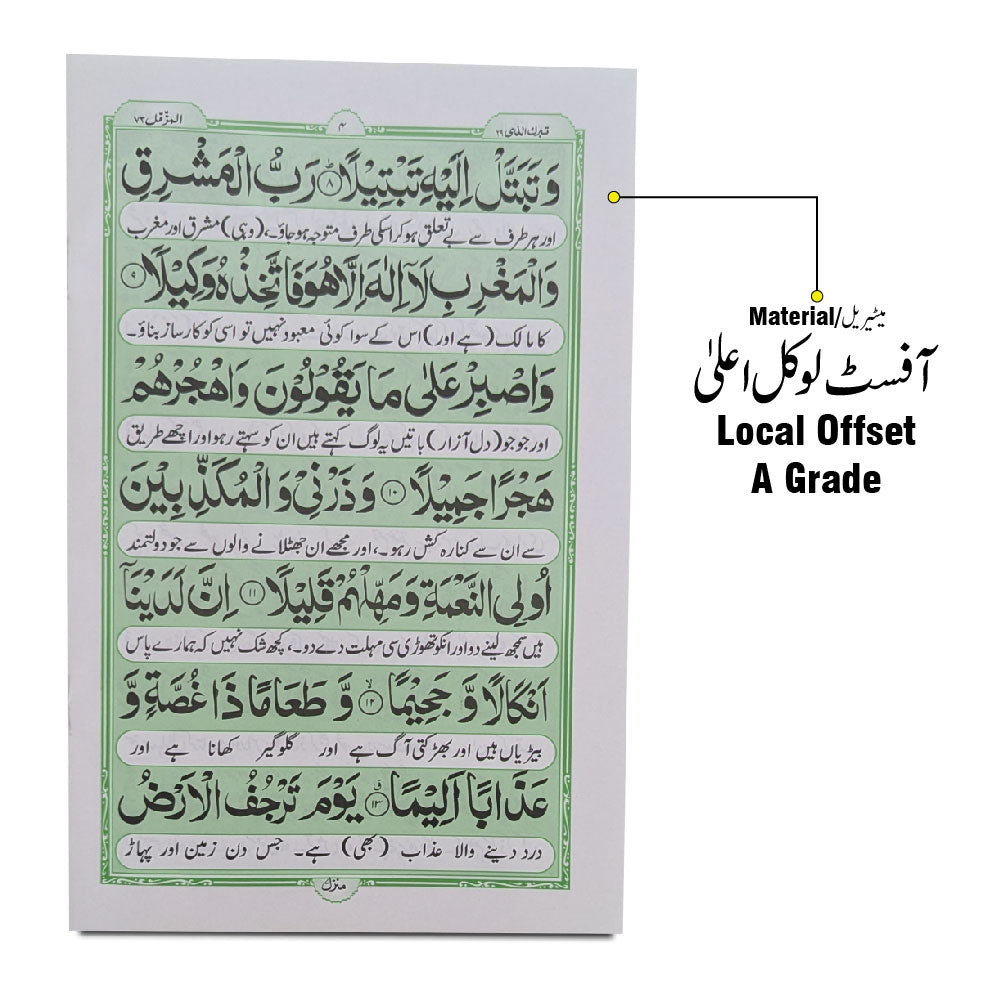 تبٰرک الذی ۲۹
۴
المزّمّل ۷۳
وَ تَبَتَّلْ اِلَیْهِ تَبْتِیْلًا ؕ﴿۸﴾ رَبُّ الْمَشْرِقِ
اور ہر طرف سے بے تعلق ہو کر اسکی طرف متوجہ ہو جاؤ۔، (وہی) مشرق اور مغرب
وَالْمَغْرِبِ لَاۤ اِلٰهَ اِلَّا هُوَ فَاتَّخِذْهُ وَکِیْلًا ﴿۹﴾
کا مالک (ہے اور) اس کے سوا کوئی معبود نہیں تو اسی کو کارساز بناؤ۔
وَاصْبِرْ عَلٰی مَا یَقُوْلُوْنَ وَاهْجُرْهُمْ
اور جو جو (دل آزار) باتیں یہ لوگ کہتے ہیں ان کو سہتے رہو اور اچھے طریق
هَجْرًا جَمِیْلًا ﴿۱۰﴾ وَ ذَرْنِیْ وَ الْمُکَذِّبِیْنَ
سے ان سے کنارہ کش رہو۔، اور مجھے ان جھٹلانے والوں سے جو دولتمند
اُولِی النَّعْمَةِ وَ مَهِّلْهُمْ قَلِیْلًا ﴿۱۱﴾ اِنَّ لَدَیْنَاۤ
ہیں سمجھ لینے دو اور انکو تھوڑی سی مہلت دے دو۔، کچھ شک نہیں کہ ہمارے پاس
اَنْکَالًا وَّ جَحِیْمًا ۙ﴿۱۲﴾ وَّ طَعَامًا ذَا غُصَّةٍ وَّ
بیڑیاں ہیں اور بھڑکتی آگ ہے اور گلوگیر کھانا ہے اور
عَذَابًا اَلِیْمًا ٭﴿۱۳﴾ یَوْمَ تَرْجُفُ الْاَرْضُ
درد دینے والا عذاب (بھی) ہے۔ جس دن زمین اور پہاڑ
منزل
Material/میٹیریل
آفسٹ لوکل اعلیٰ
Local Offset
A Grade